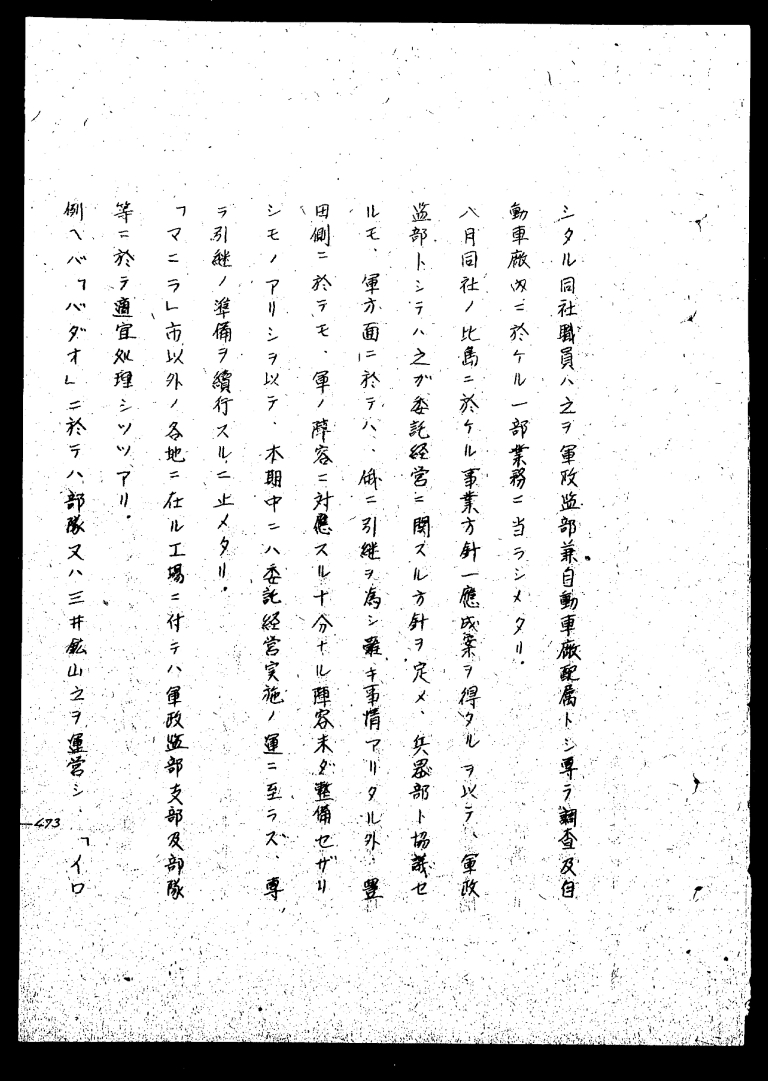 シタル同社職員ハ之ヲ軍政監部兼自動車廠配属トシ専ラ調査及自
動車廠内ニ於ケル一部業務ニ当ラシメタリ。
八月同社ノ比島ニ於ケル事業方針一應成案ヲ得タルヲ以テ、軍政
監部トシテハ之ガ委託経営ニ関スル方針ヲ定メ、兵器部ト協議セ
ルモ、軍方面ニ於テハ、俄ニ引継ヲ為シ難キ事情アリタル外、豊
田側ニ於テモ、軍ノ陣容ニ対應スル十分ナル陣容未ダ整備セザリ
シモノアリシヲ以テ、本期中ニハ委託経営実施ノ運ニ至ラズ、専
ラ引継ノ準備ヲ續行スルニ止メタリ。
「マニラ」市以外ノ各地ニ在ル工場ニ付テハ軍政監部支部及部隊
等ニ於テ適宜処理シツツアリ。
例ヘバ「バダオ」ニ於テハ部隊又ハ三井鉱山之ヲ運営シ、「イロ
473